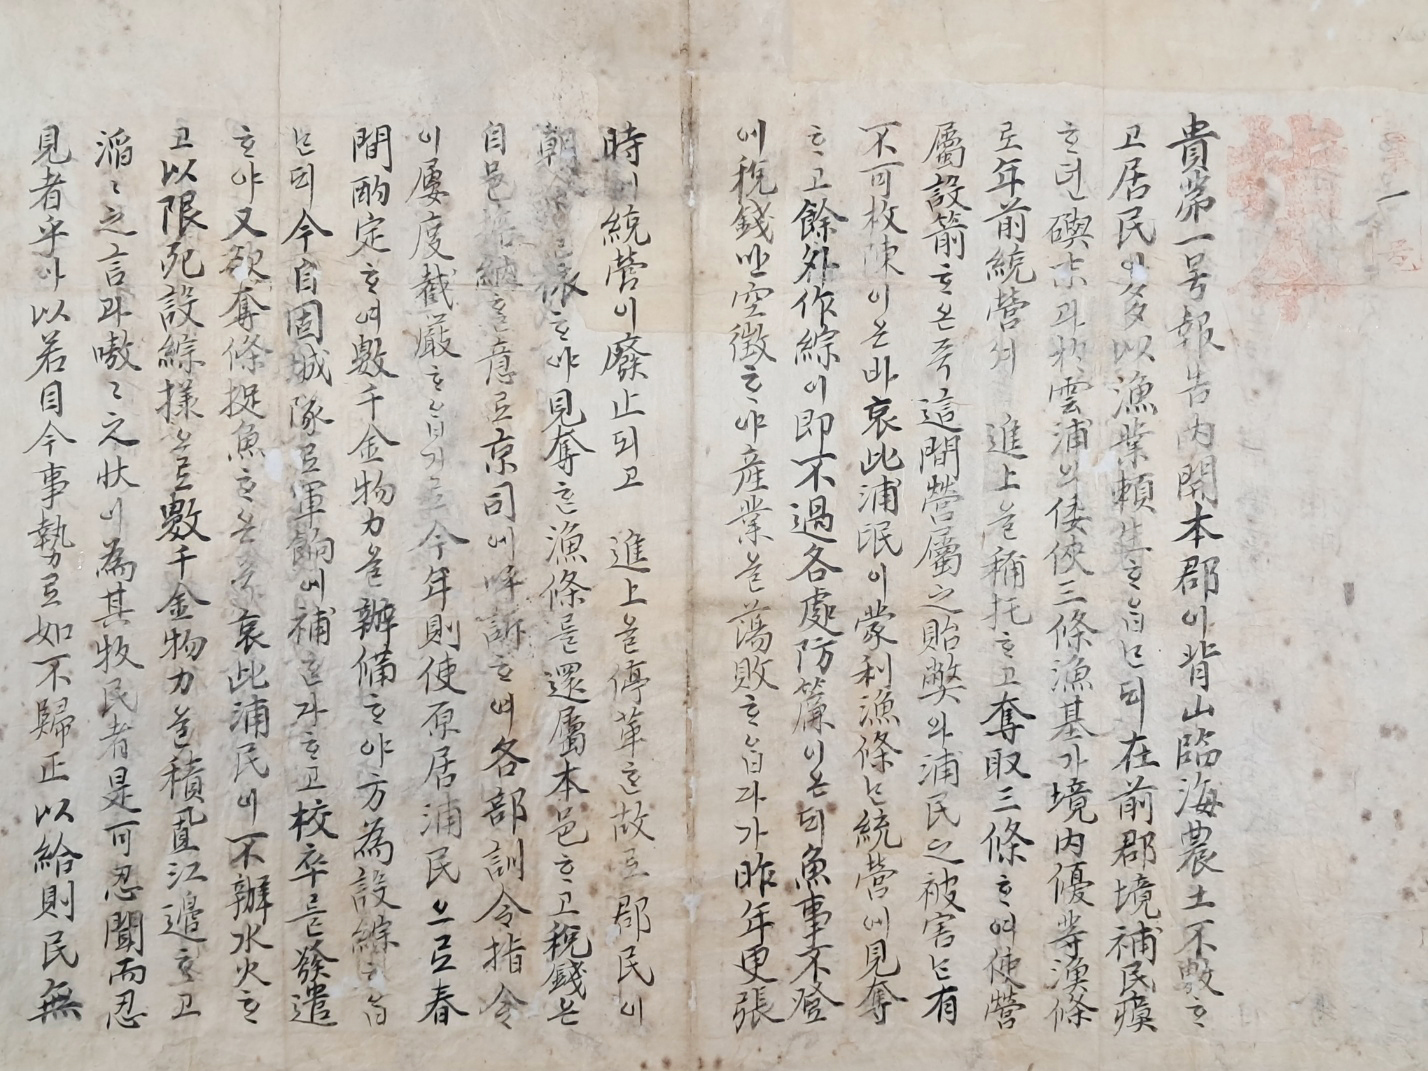 貴第一号報告內開本郡이背山臨海農土不敷ᄒ
고居民이多以漁業頼生ᄒᆞᄋᆞᆸᄂᆞᆫᄃᆡ在前郡境補民瘼
ᄒᆞ던과雲浦의倭俠三條漁基가境內優等漁條
로年前統營셔 進上을稱托ᄒᆞ고奪取三條ᄒᆞ여使營
屬設箭ᄒᆞ온즉這間營屬之貽弊와浦民之被害ᄂᆞᆫ有
不可枚陳이온바哀此浦氓이蒙利漁條ᄂᆞᆫ統營에見奪
ᄒᆞ고餘外作綜이即不過各處防簾이온ᄃᆡ魚事不登
에稅錢만空徴ᄒᆞ야産業을蕩敗ᄒᆞᄋᆞᆸ다가昨年更張
時에統營이廢止되고 進上을停革ᄒᆞᆫ故로郡民이
朝令을依ᄒᆞ야見奪ᄒᆞᆫ漁條를還屬本邑ᄒᆞ고稅錢은
自邑納ᄒᆞᆯ意로京司에呼訴ᄒᆞ여各部訓令指令
이屢度截嚴ᄒᆞᄋᆞᆸ기로今年則使原居浦民으로春
間酌定ᄒᆞ여數千金物力을辦備ᄒᆞ야方為設綜ᄒᆞᄋᆞᆸ
ᄂᆞᆫᄃᆡ今自固城隊로軍餉에補ᄒᆞᆫ다ᄒᆞ고校卒를發遣
ᄒᆞ야又欲奪條捉魚ᄒᆞ온즉哀此浦民이不辦水火ᄒᆞ
고以限死設綜様으로數千金物力을積置江邉ᄒᆞ고
滔〻之言과嗷〻之狀이為其牧民者是可忍聞而忍
見者乎아以若目今事勢로如不歸正以給則民無
一